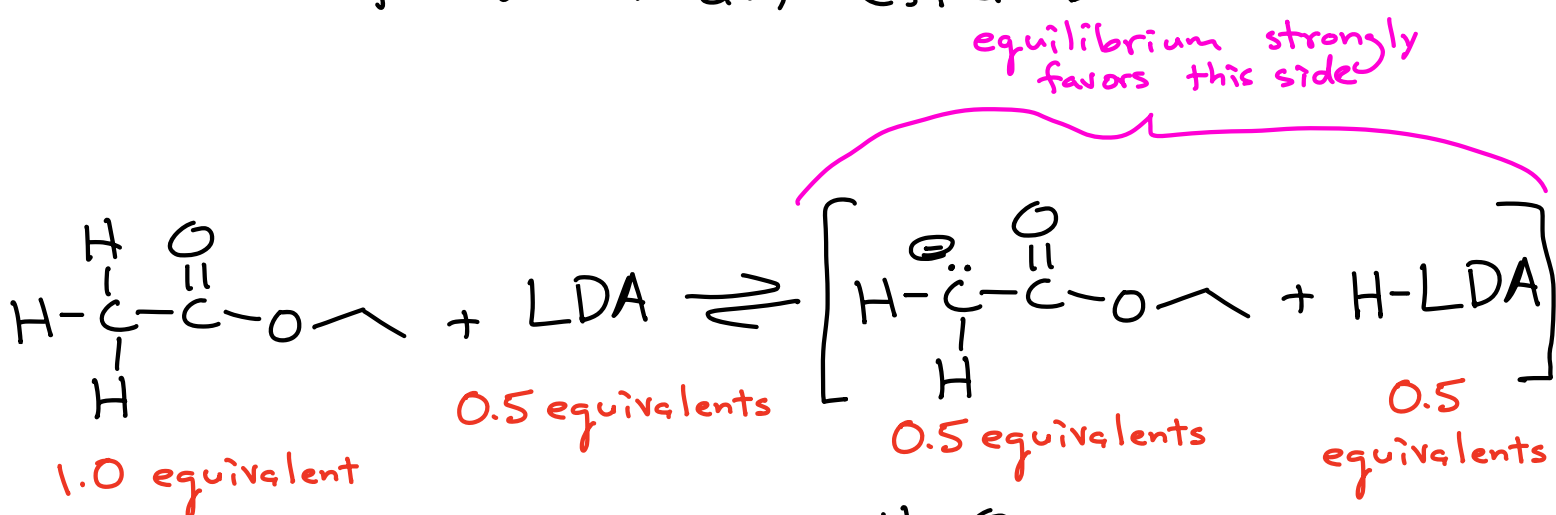 equilibrium strongly
favors this side
H O H O
H-C-C-O + LDA ⇌ [ H-C-C-O + H-LDA ]
H H
0.5 equivalents 0.5 equivalents 0.5
equivalents
1.0 equivalent